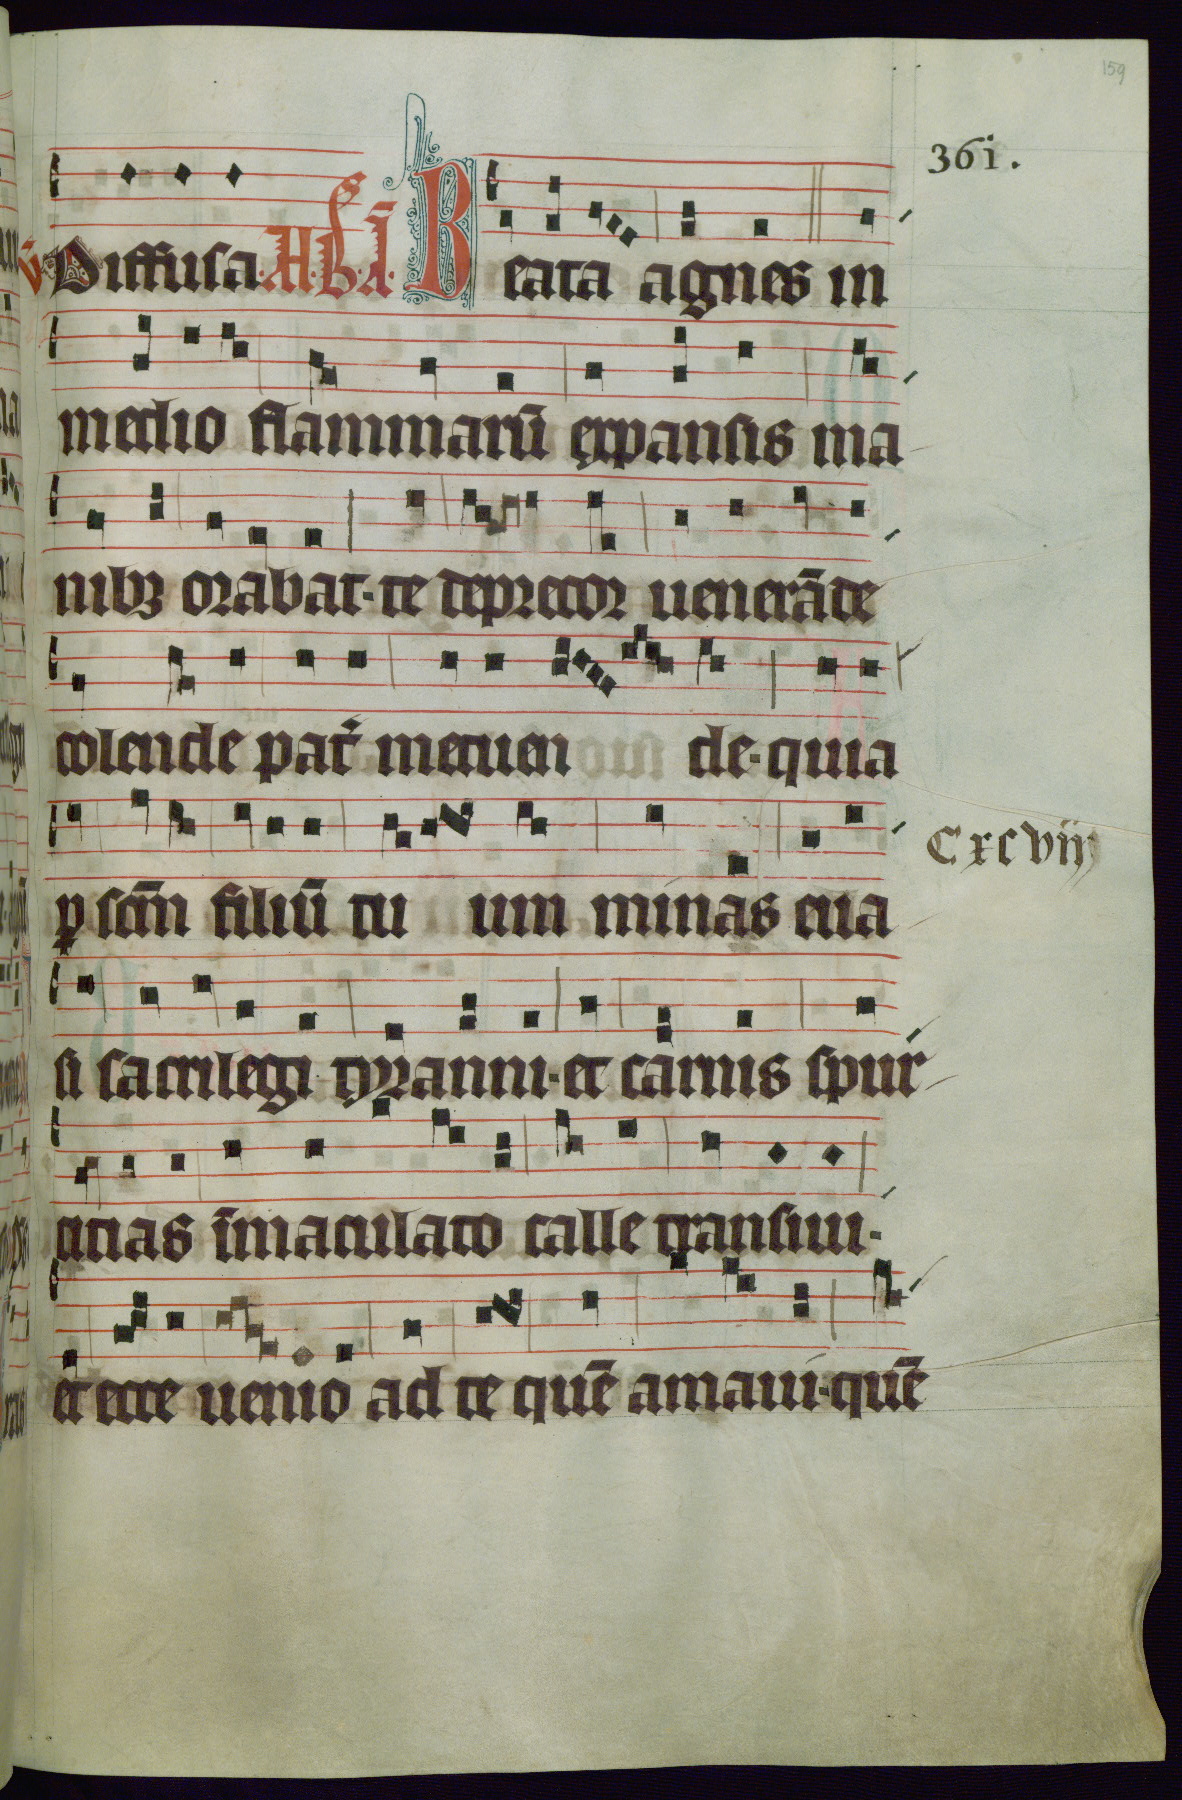 159
361.
V̄ Diffusa. A. b. J̄. Beata agnes in
medio flammarū expansis ma
nibꝫ orabat. te deprecor uenerāde
colende pat̄ metuen de. quia
ꝑ scm̄ filiū tu um minas eua
Cxcviij
si sacrilegi tyranni. et carnis spur
citias īmaculato calle transiui.
et ecce uenio ad te quē amaui. quē